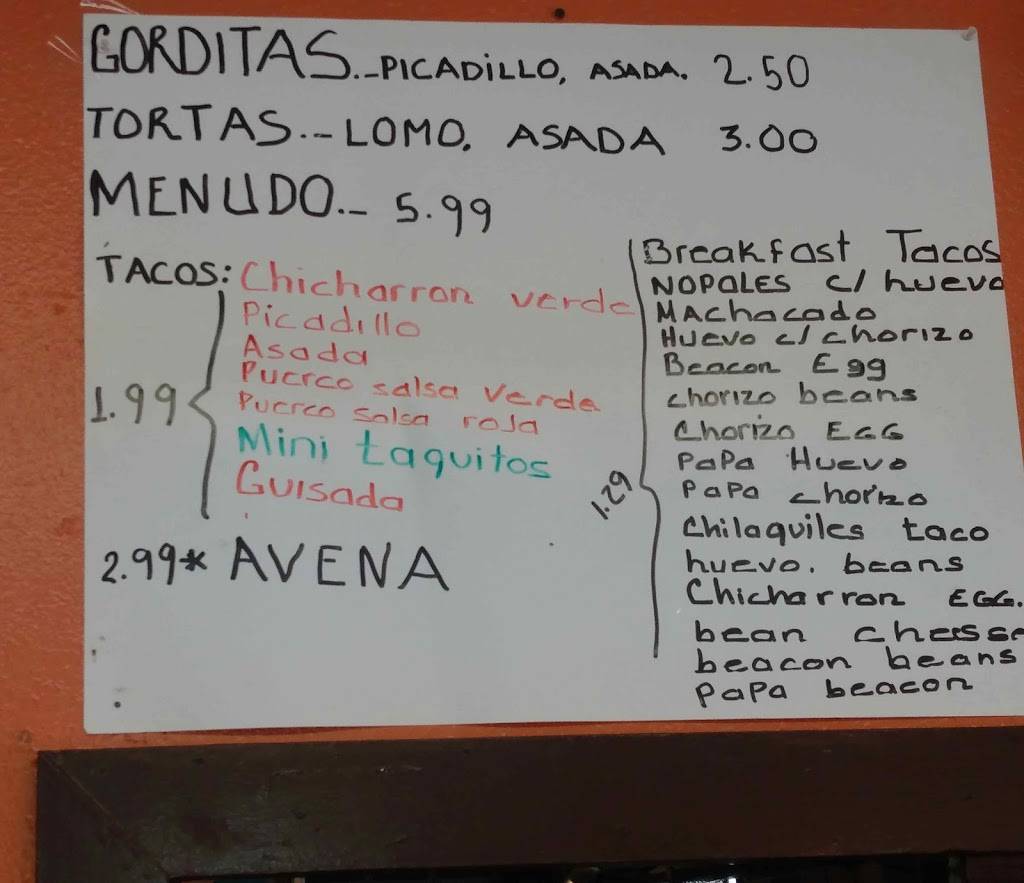 GORDITAS..-PICADILLO, ASADA. 2.50
TORTAS..-LOMO, ASADA 3.00
MENUDO.- 5.99
TACOS: Chicharron verde
Picadillo
Asada
Puerco salsa verde
Puerco salsa roja
Mini taquitos
Guisada
1.99
2.99* AVENA
Breakfast Tacos
NOPALES c/ huevo
MAChacado
Huevo c/ chorizo
Beacon Egg
chorizo beans
Chorizo EGG
PaPa Huevo
PaPa chorizo
Chilaquiles taco
huevo. beans
Chicharron EGG.
bean cheesse
beacon beans
PaPa beacon
1.29